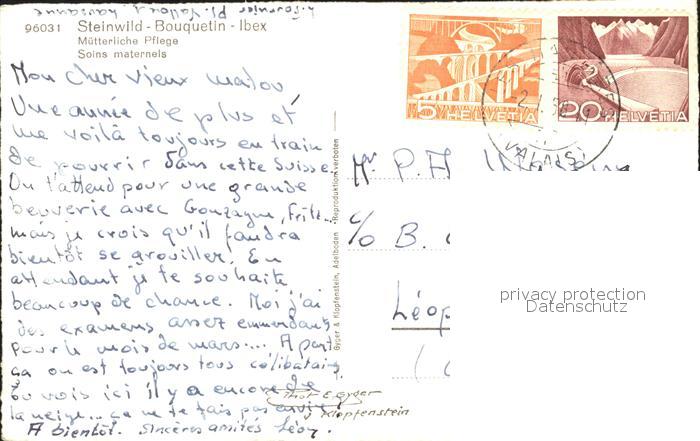 L. Fournier Pl. Vallou, Lausanne
96031 Steinwild - Bouquetin - Ibex
Mütterliche Pflege
Soins maternels
Mon cher vieux matou
Une année de plus et
me voilà toujours en train
de pourrir dans cette Suisse.
On t'attend pour une grande
beuverie avec Gonzague, Fritz...
mais je crois qu'il faudra
bientôt se grouiller. En
attendant je te souhaite
beaucoup de chance. Moi j'ai
des examens assez emmerdants
pour le mois de mars.... A part
ça on est toujours tous célibataires
tu vois ici il y a encore de
la neige... ça ne te fais pas envie
A bientôt. Sincères amitiés Léon.
Gyger & Klopfenstein, Adelboden - Reproduktion verboten
Phot E. Gyger
& Klopfenstein
5 HELVETIA
20 HELVETIA
(VALAIS)
Mr P.A.
c/o B.
Léop
privacy protection
Datenschutz